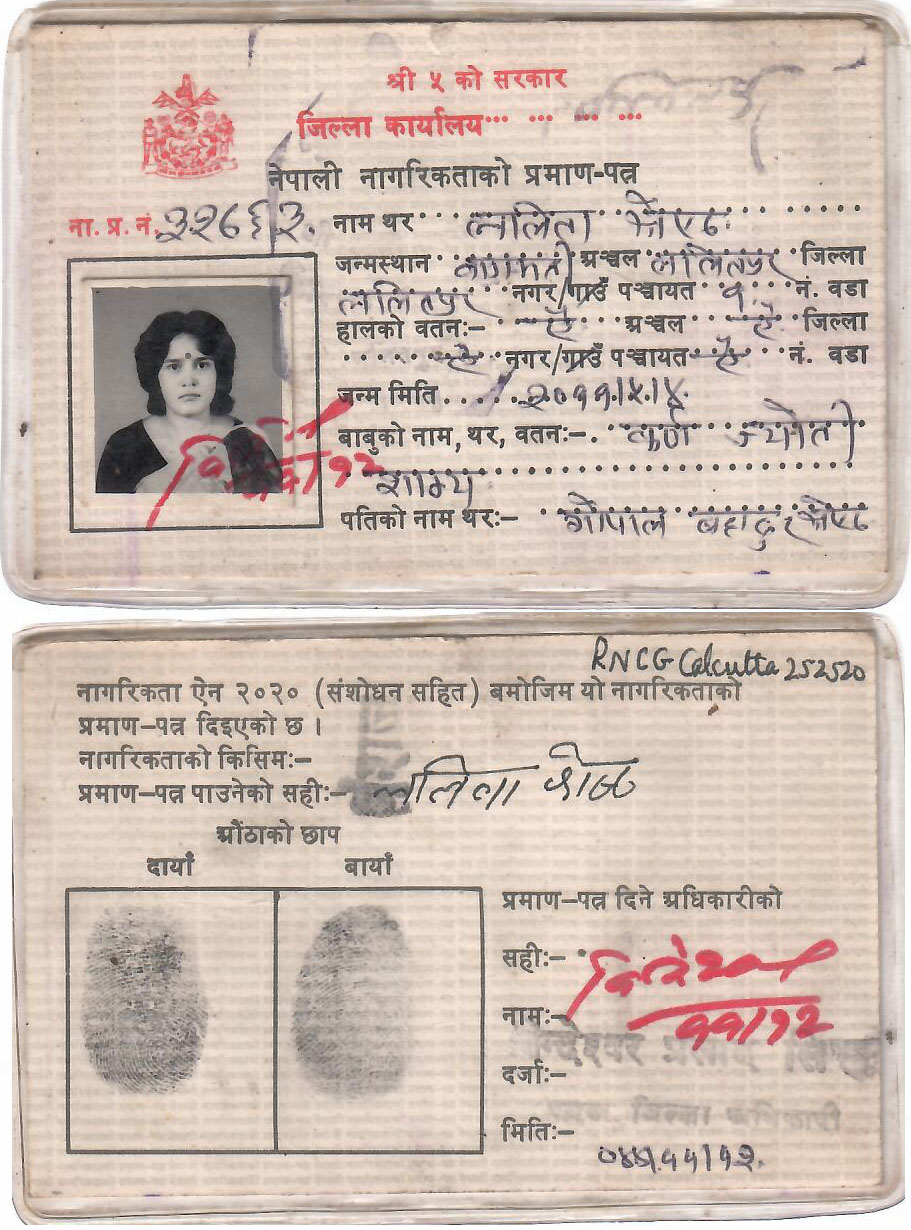 श्री ५ को सरकार
जिल्ला कार्यालय... ... ... ...
नेपाली नागरिकताको प्रमाण-पत्र
ना. प्र. नं.
नाम थर ललिता श्रेष्ठ
जन्मस्थान बागमती अञ्चल ललितपुर जिल्ला
ललितपुर नगर/गाउँ पञ्चायत १ नं. वडा
हालको वतनः- ऐ अञ्चल ऐ जिल्ला
ऐ नगर/गाउँ पञ्चायत ऐ नं. वडा
जन्म मिति २०११।५।५
बाबुको नाम, थर, वतनः-
शाक्य
पतिको नाम थरः- गोपाल बहादुर श्रेष्ठ
RNCG Calcutta 252520
नागरिकता ऐन २०२० (संशोधन सहित) बमोजिम यो नागरिकताको
प्रमाण-पत्र दिइएको छ ।
नागरिकताको किसिमः-
प्रमाण-पत्र पाउनेको सहीः- ललिता श्रेष्ठ
औंठाको छाप
दायाँ बायाँ
प्रमाण-पत्र दिने अधिकारीको
सहीः-
नामः-
दर्जाः-
जिल्ला अधिकारी
मितिः-